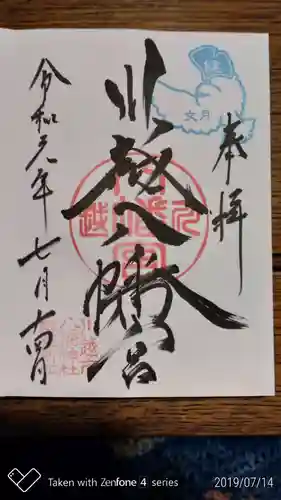 奉拝
川越八幡宮
令和元年七月十四日
文月
Taken with Zenfone 4 series
2019/07/14